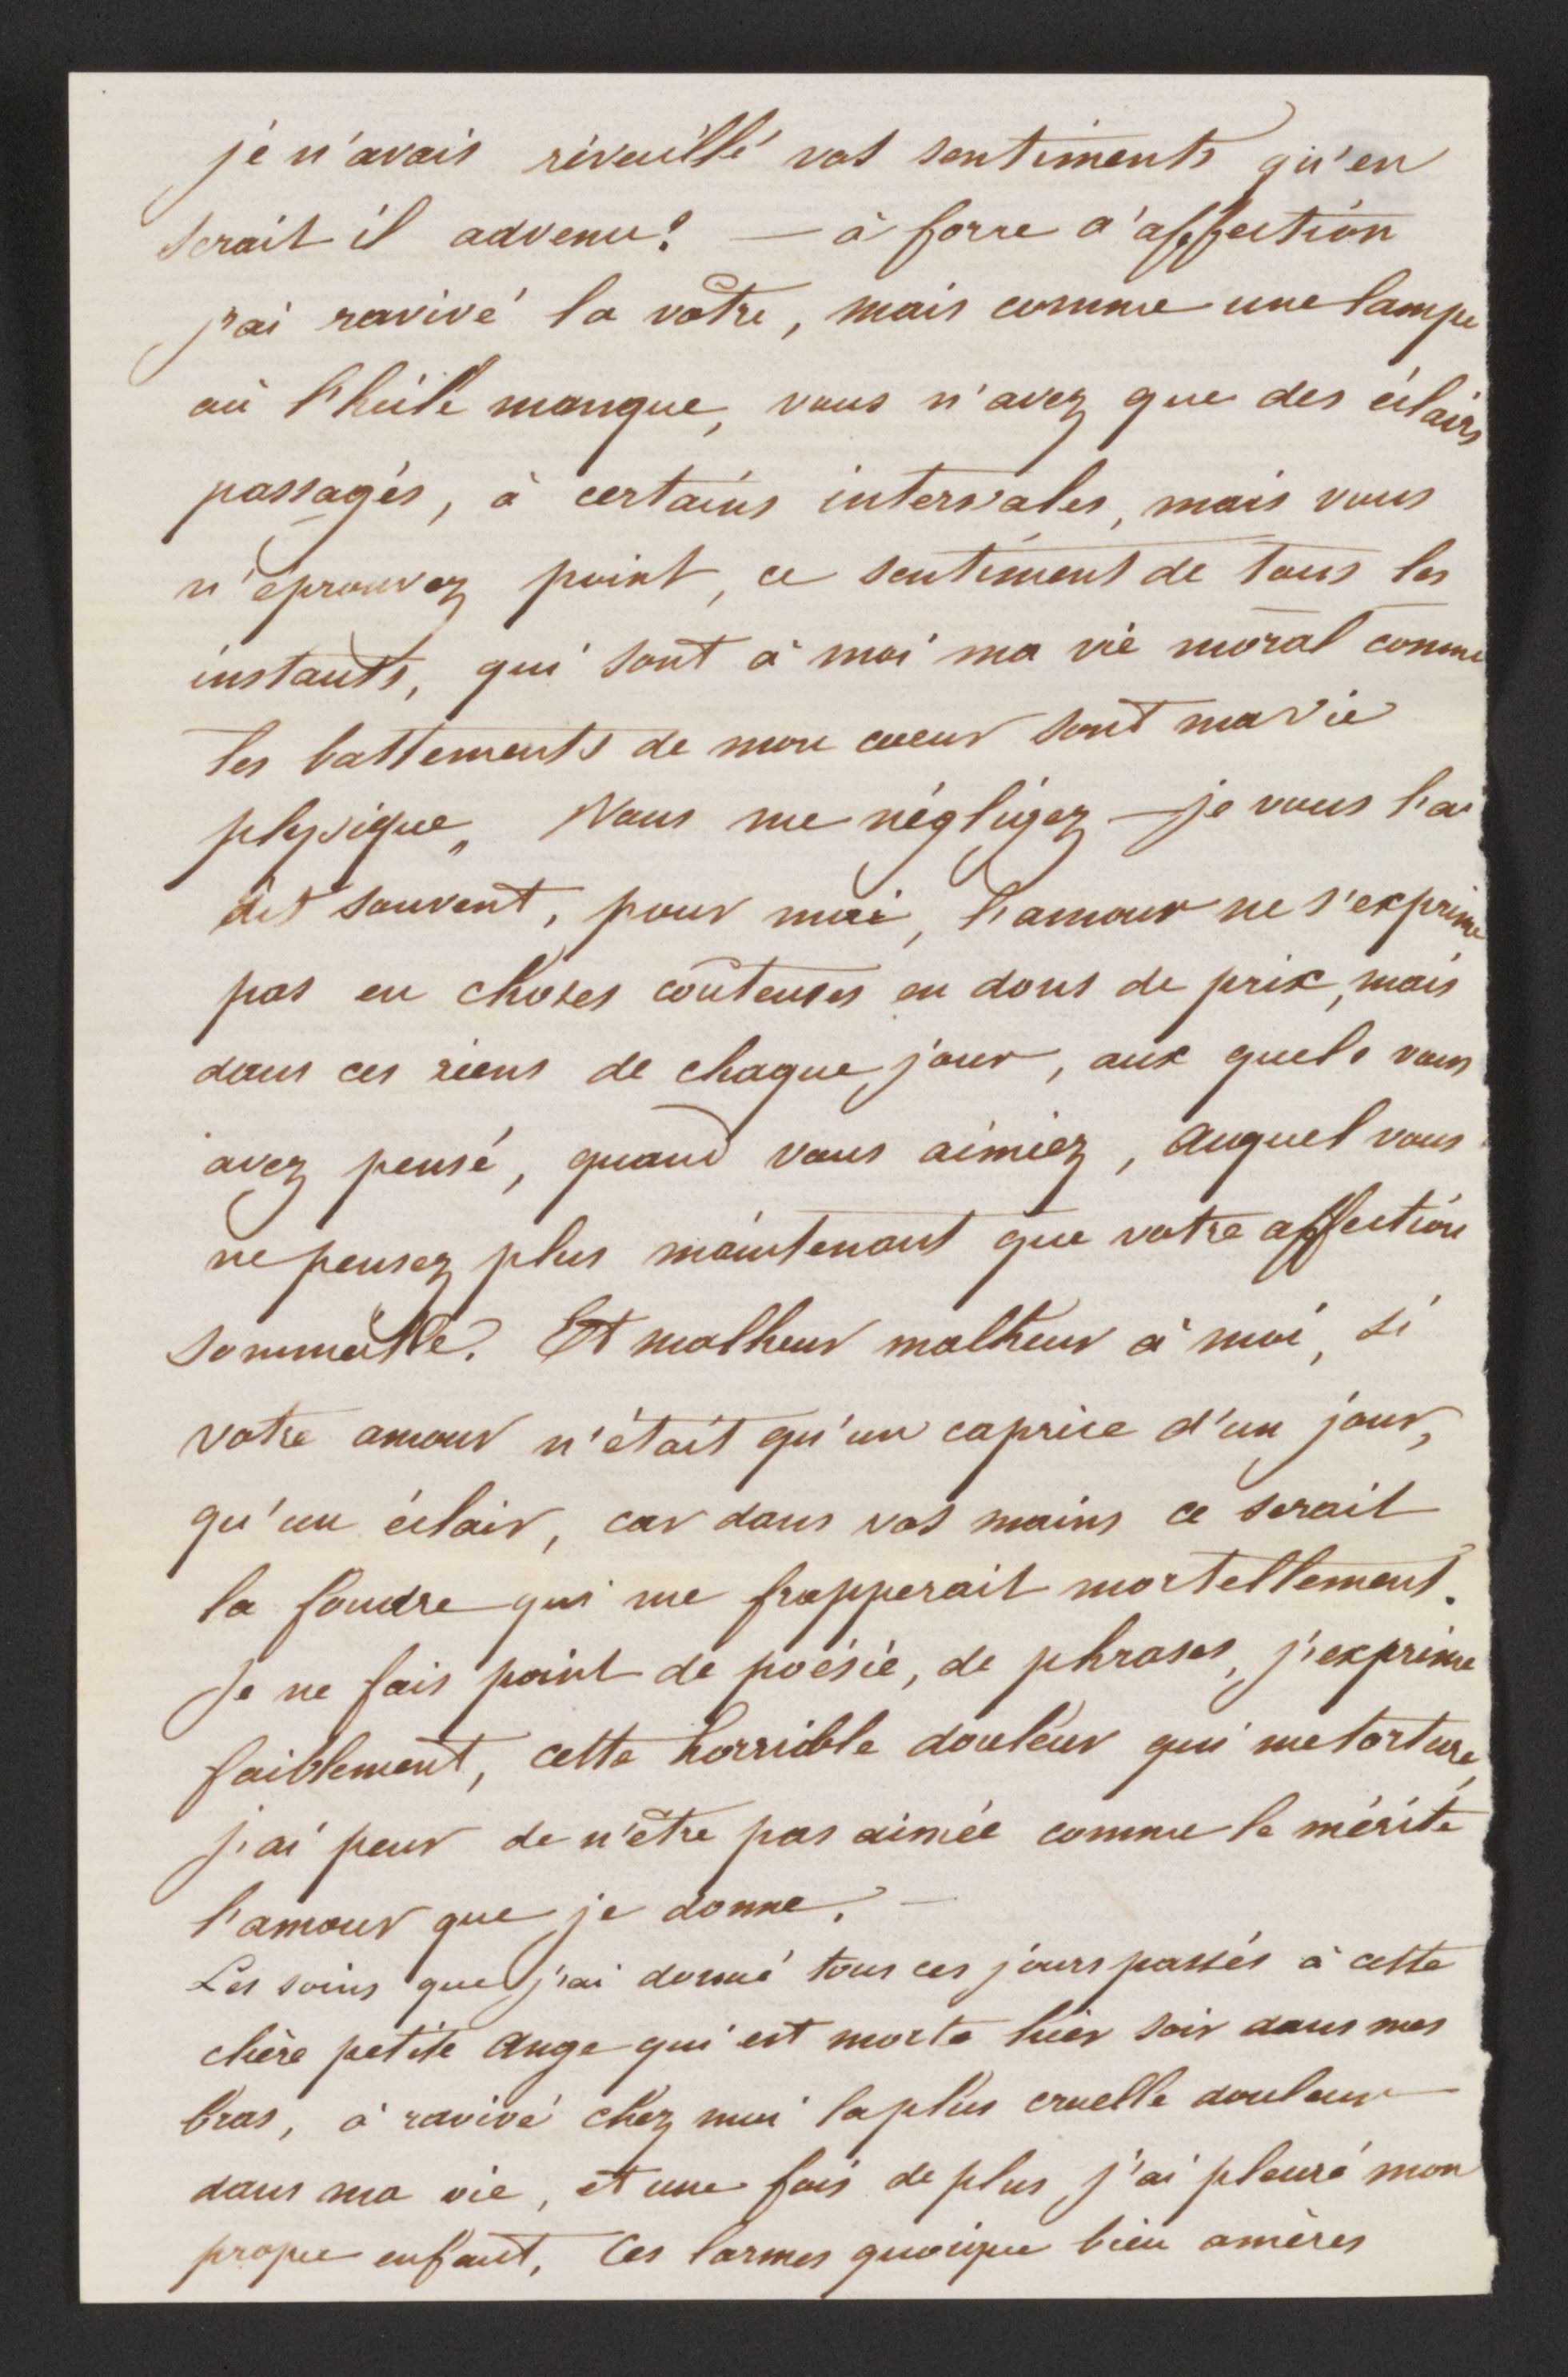 je n'avais réveillé vos sentiments qu'en
serait il advenu? — à force d'affection
j'ai ravivé la vôtre, mais comme une lampe
où l'huile manque, vous n'avez que des éclairs
passagés, à certains intervales, mais vous
n'éprouvez point, ce sentiment de tous les
instants, qui sont à moi ma vie moral comme
les battements de mon coeur sont ma vie
physique. Vous me négligez — je vous l'ai
dit souvent, pour moi, l'amour ne s'exprime
pas en choses coûteuses en dons de prix, mais
dans ces riens de chaque jour, aux quels vous
avez pensé, quand vous aimiez, auquel vous
ne pensez plus maintenant que votre affection
sommeille. Et malheur malheur à moi, si
votre amour n'était qu'un caprice d'un jour,
qu'un éclair, car dans vos mains ce serait
la foudre qui me frapperait mortellement.
Je ne fais point de poésie, de phrases, j'exprime
faiblement, cette horrible douleur qui me torture,
j'ai peur de n'être pas aimée comme le mérite
l'amour que je donne. —
Les soins que j'ai donné tous ces jours passés à cette
chère petite ange qui est morte hier soir dans mes
bras, à ravivé chez moi la plus cruelle douleur
dans ma vie, et une fois de plus j'ai pleuré mon
propre enfant. Ces larmes quoique bien amères